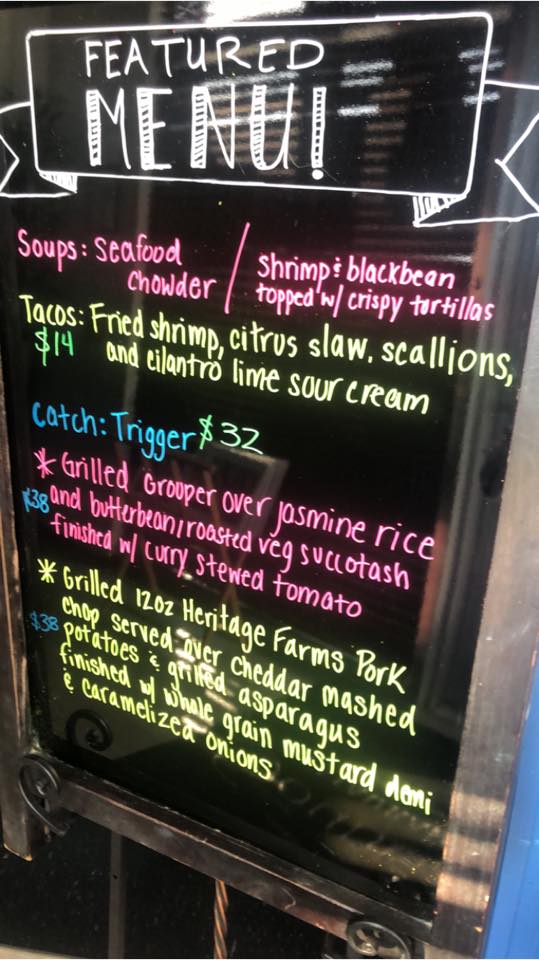 FEATURED
MENU!
Soups: Seafood chowder / Shrimp & blackbean
topped w/ crispy tortillas
Tacos: Fried shrimp, citrus slaw, scallions,
$14 and cilantro lime sour cream
Catch: Trigger $32
* Grilled Grouper over jasmine rice
$38 and butterbean/roasted veg succotash
finished w/ curry stewed tomato
* Grilled 12oz Heritage Farms Pork
chop served over cheddar mashed
$38 potatoes & grilled asparagus
finished w/ whole grain mustard demi
& caramelized onions